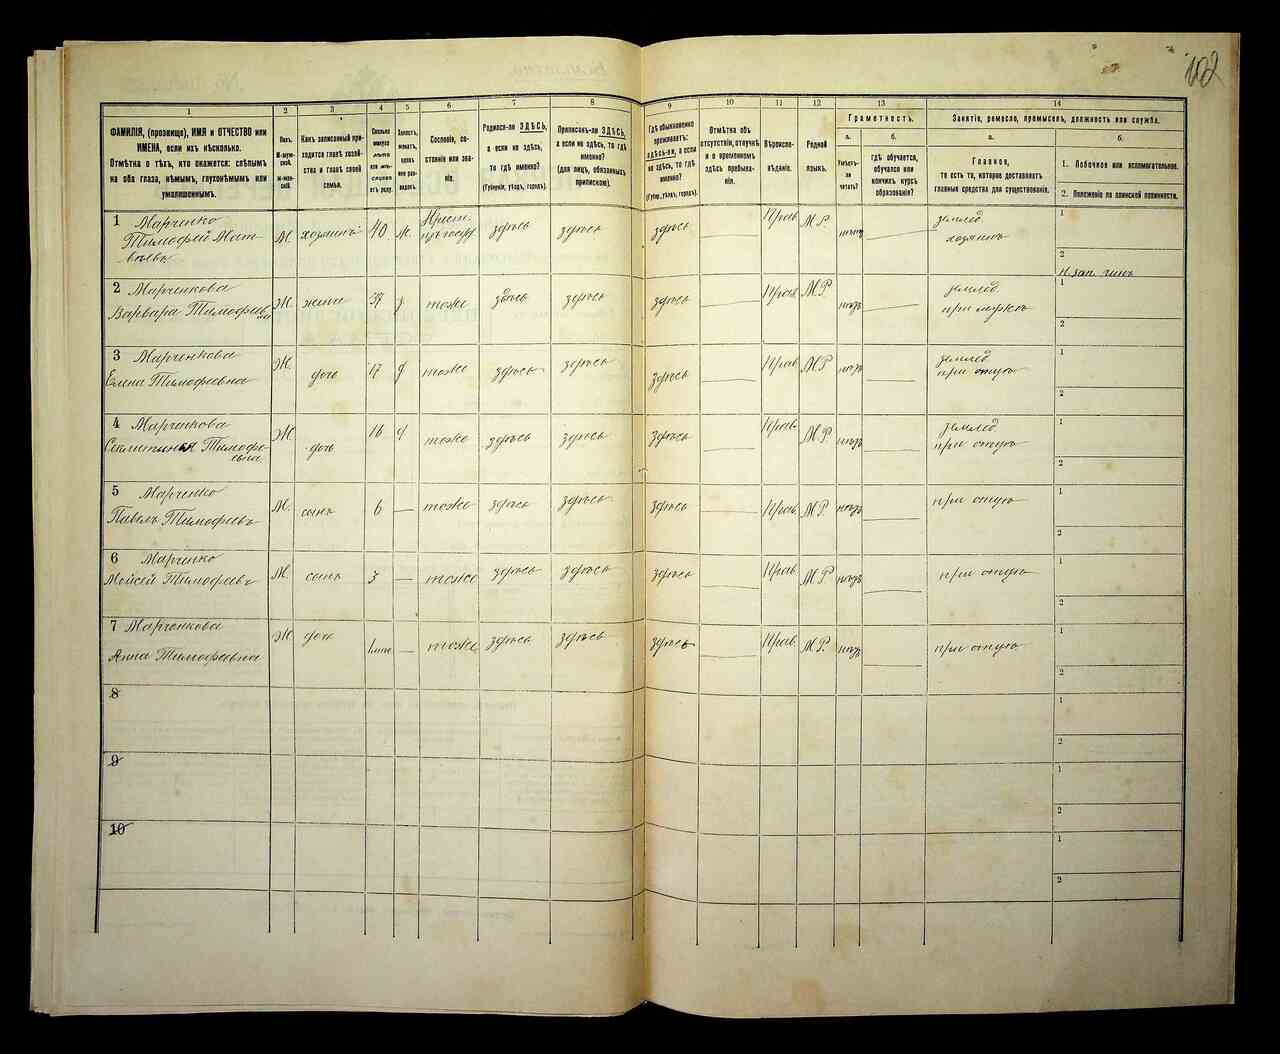 102
1
2
3
4
5
6
7
8
9
10
11
12
13
14
ФАМИЛІЯ, (прозвище), ИМЯ и ОТЧЕСТВО или
ИМЕНА, если ихъ нѣсколько.
Отмѣтка о тѣхъ, кто окажется: слѣпымъ
на оба глаза, нѣмымъ, глухонѣмымъ или
умалишеннымъ.
Полъ.
М-мужской.
Ж-женскій.
Какъ записанный при-
ходится главѣ хозяй-
ства и главѣ своей
семьи.
Сколько
минуло
лѣтъ
или мѣ-
сяцевъ
отъ роду.
Холостъ,
женатъ,
вдовъ
или раз-
веденъ.
Сословіе, со-
стояніе или зва-
ніе.
Родился-ли ЗДѢСЬ,
а если не здѣсь,
то гдѣ именно?
(Губернія, уѣздъ, городъ).
Приписанъ-ли ЗДѢСЬ,
а если не здѣсь, то гдѣ
именно?
(для лицъ, обязанныхъ
припискою).
Гдѣ обыкновенно
проживаетъ:
здѣсь-ли, а если
не здѣсь, то гдѣ
именно?
(Губер., уѣздъ, городъ).
Отмѣтка объ
отсутствіи, отлучкѣ
и о временномъ
здѣсь пребыва-
ніи.
Вѣроиспо-
вѣданіе.
Родной
языкъ.
Грамотность.
а.
Умѣетъ-
ли
читать?
б.
гдѣ обучается,
обучался или
кончилъ курсъ
образованія?
Занятіе, ремесло, промыселъ, должность или служба.
а.
Главное,
то есть то, которое доставляетъ
главныя средства для существованія.
б.
1. Побочное или вспомогательное.
2. Положеніе по воинской повинности.
1 Марченко
Тимофей Мат
вѣевъ
М. хозяинъ 40 ж. Крест. здѣсь здѣсь здѣсь Прав. М.Р. нѣтъ землед.
хозяинъ
1
2
2 Марченкова
Варвара Тимофеевна
Ж. жена 37 з. тоже здѣсь здѣсь здѣсь Прав. М.Р. нѣтъ землед.
при мужѣ
1
2
3 Марченкова
Елена Тимофеевна
Ж. дочь 17 д тоже здѣсь здѣсь здѣсь Прав. М.Р. нѣтъ землед
при отцѣ
1
2
4 Марченкова
Тимофе-
евна
Ж. дочь 16 д. тоже здѣсь здѣсь здѣсь Прав. М.Р. нѣтъ землед
при отцѣ
1
2
5 Марченко
Павелъ Тимофеевъ
М. сынъ 6 — тоже здѣсь здѣсь здѣсь Прав. М.Р. нѣтъ при отцѣ
1
2
6 Марченко
Мойсей Тимофеевъ
М. сынъ 3 — тоже здѣсь здѣсь здѣсь Прав. М.Р. нѣтъ при отцѣ
1
2
7 Марченкова
Анна Тимофеевна
Ж. дочь — тоже здѣсь здѣсь здѣсь Прав. М.Р. нѣтъ при отцѣ
1
2
8
1
2
9
1
2
10
1
2